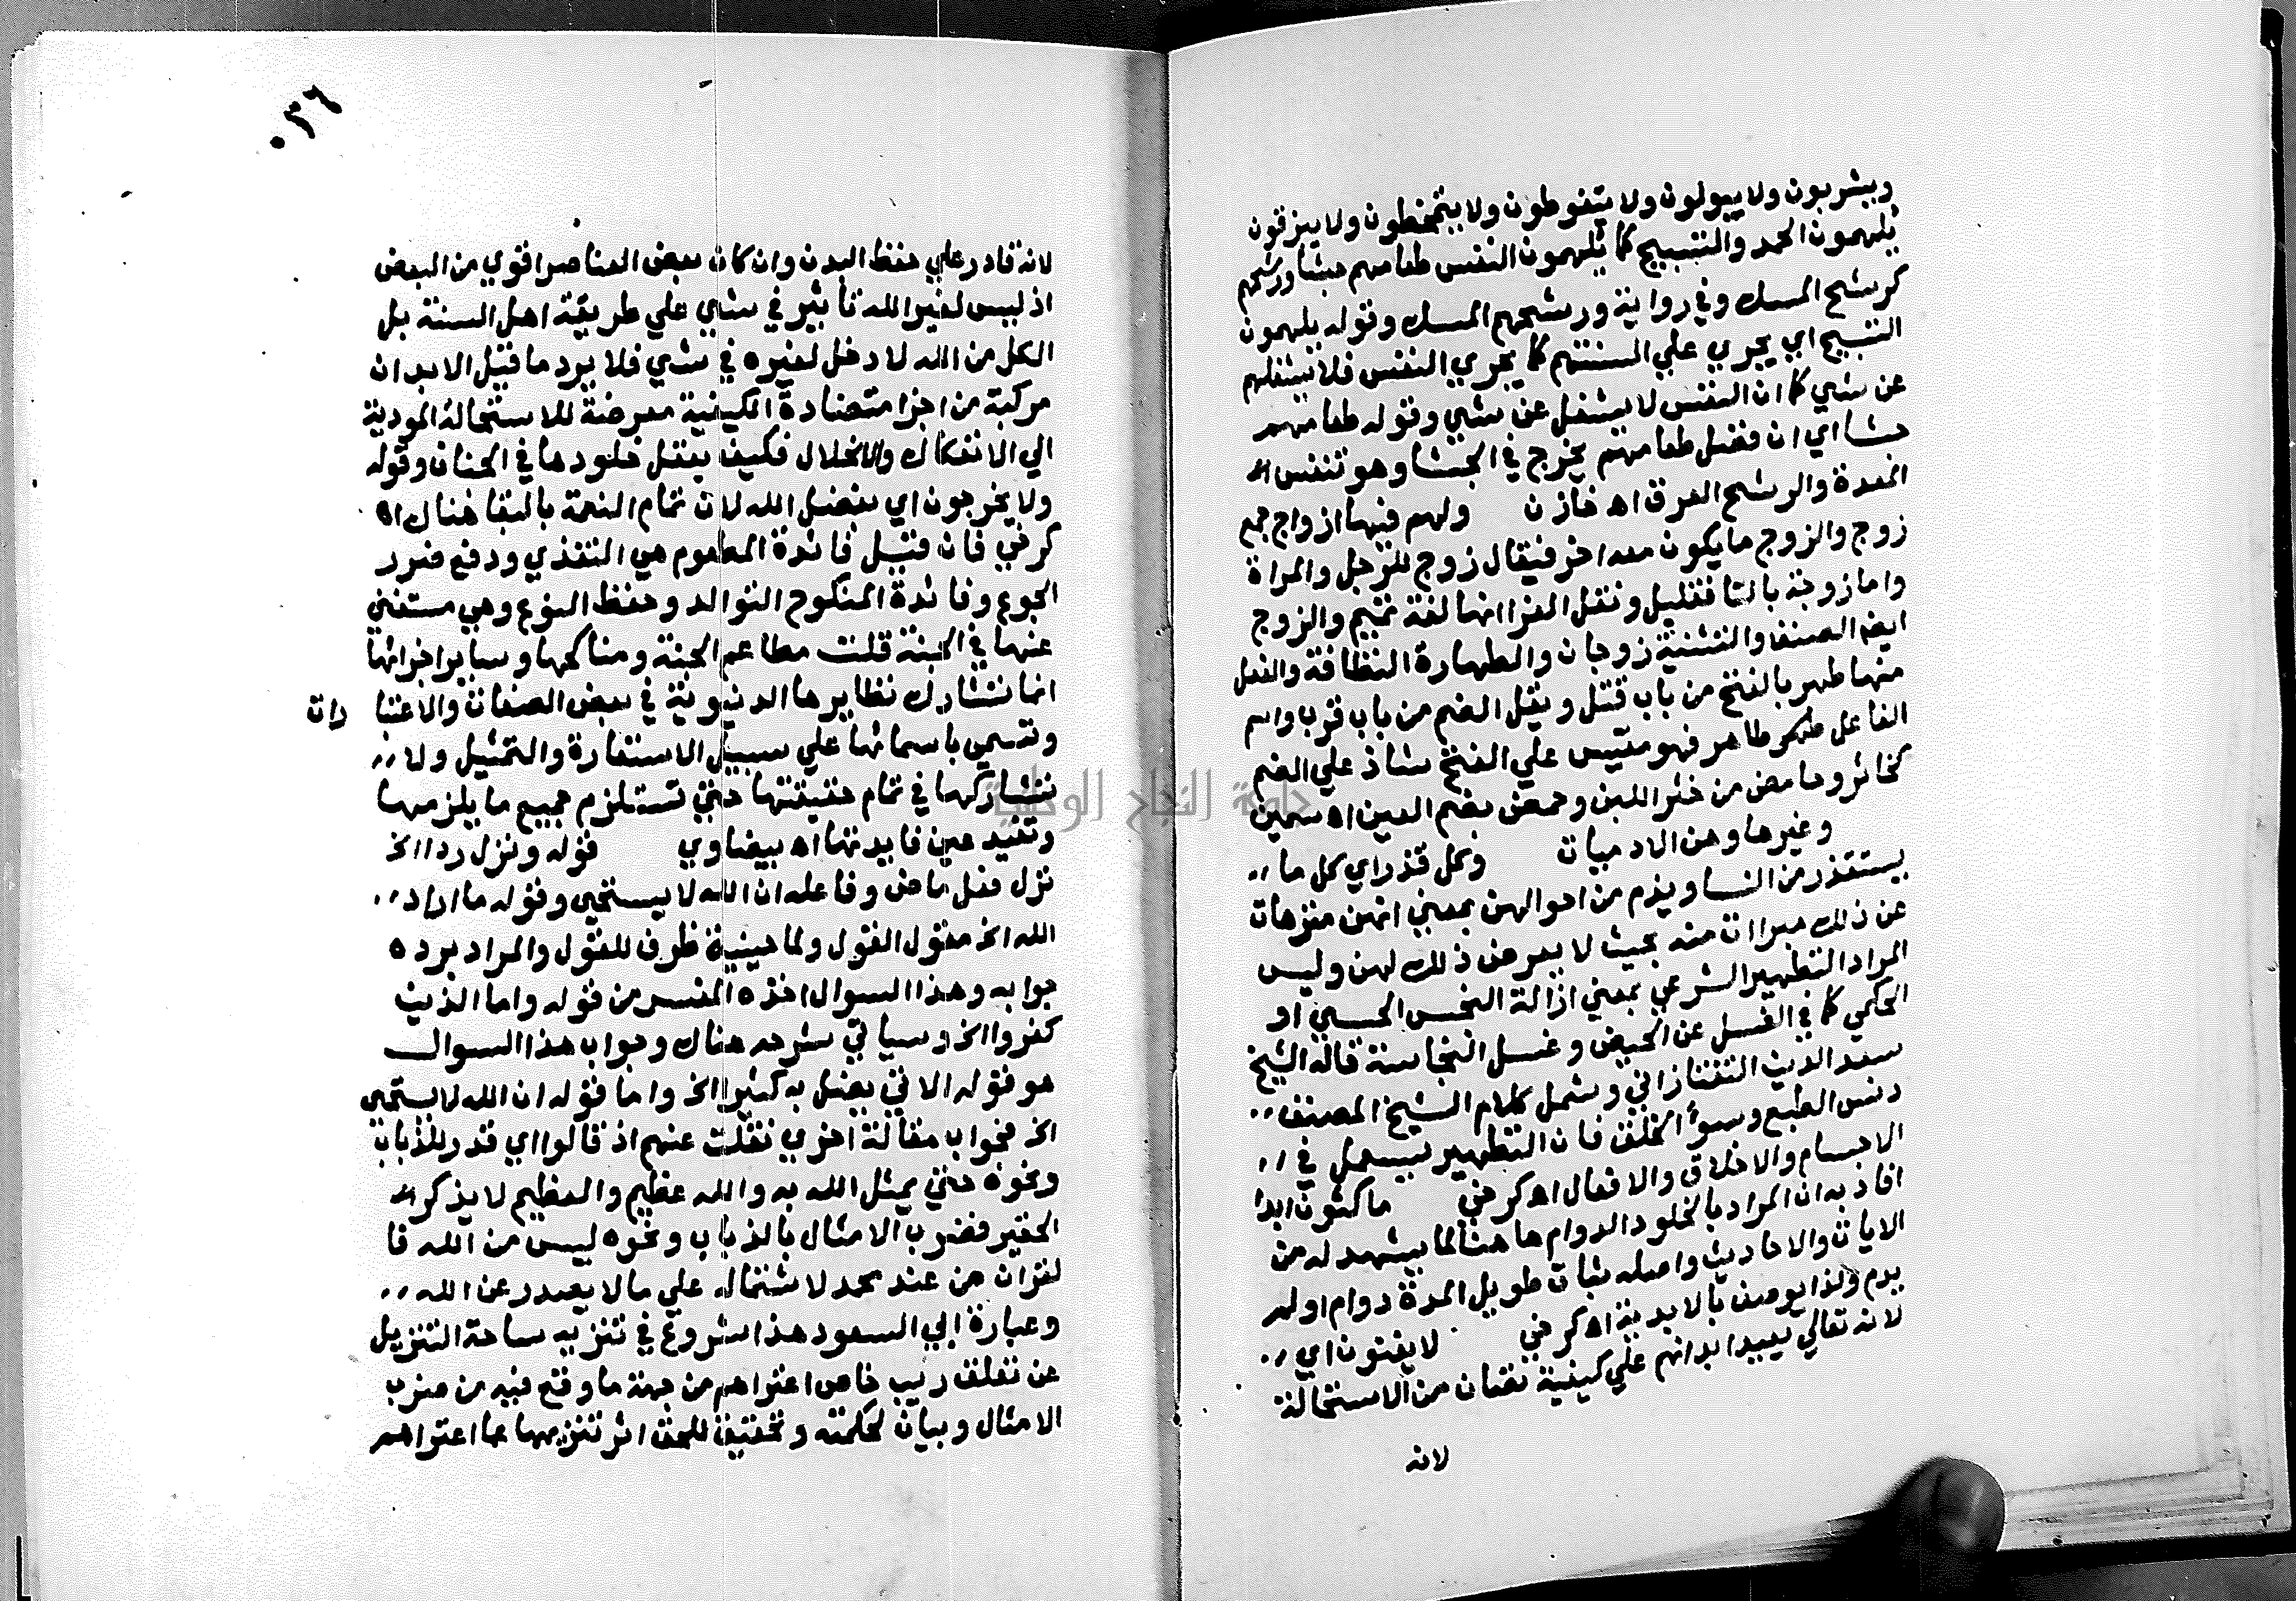 ويشربون ولا يبولون ولا يتغوطون ولا يتمخطون ولا يبزقون
يلهمون الحمد والتسبيح كما يلهمون النفس طعامهم جشا ورشحهم
كرشح المسك وفي رواية ورشحهم المسك وقوله يلهمون
التسبيح اي يجري علي السنتهم كما يجري النفس فلا يشغلهم
عن شي كما ان النفس لا يشغل عن شي وقوله طعامهم
جشا اي ان فضل طعامهم يخرج في الجشا وهو تنفس
المعدة والرشح العرق اه خازن ولهم فيها ازواج جمع
زوج والزوج ما يكون معه اخر فيقال زوج للرجل والمراة
واما زوجة بالتا فقليل ونقل الفرا انها لغة تميم والزوج
ايضا الصنف والتثنية زوجان والطهارة النظافة والفعل
منها طهر بالفتح من باب قتل ويقل الضم من باب قرب واسم
الفاعل طاهر فهو مقيس علي الفتح شاذ علي الضم
كخاثر وحامض من خثر اللبن وحمض بضم العين اه سمين
وغيرها وهن الادميات وكل قذر اي كل ما
يستقذر من النسا ويذم من احوالهن بمعني انهن منزهات
عن ذلك مبرات منه بحيث لا يعرض ذلك لهن وليس
المراد التطهير الشرعي بمعني ازالة النجس الحسي او
الحكمي كما في الغسل عن الحيض وغسل النجاسة قاله الشيخ
سعد الدين التفتازاني وشمل كلام الشيخ المصنف
دنس الطبع وسوء الخلق فان التطهير يستعمل في
الاجسام والاخلاق والافعال اه كرخي ماكثون ابدا
افاد به ان المراد بالخلود الدوام هاهنا لما يشهد له من
الايات والاحاديث واصله ثبات طويل المدة دوام او لم
يدم ولذا يوصف بالابدية اه كرخي لا يفنون اي
لانه تعالي يعيد ابدانهم علي كيفية تصان من الاستحالة
لانه
٠٣٦
لانه قادر علي حفظ البدن وان كان بعض العناصر اقوي من البعض
اذ ليس لغير الله تاثير في شي علي طريقة اهل السنة بل
الكل من الله لا دخل لغيره في شي فلا يرد ما قيل الابدان
مركبة من اجزا متضادة الكيفية معرضة للاستحالة المودية
الي الانفكاك والانحلال فكيف يعقل خلودها في الجنان وقوله
ولا يخرجون اي بفضل الله لان تمام النعمة بالبقا هناك اه
كرخي فان قيل فائدة المطعوم هي التغذي ودفع ضرر
الجوع وفائدة المنكوح التوالد وحفظ النوع وهي مستغني
عنها في الجنة قلت مطاعم الجنة ومناكحها وساير اجزائها
انما تشارك نظايرها الدنيوية في بعض الصفات والاعتبا رات
وتسمي باسمائها علي سبيل الاستعارة والتمثيل ولا
تشاركها في تمام حقيقتها حتي تستلزم جميع ما يلزمها
وتفيد عين فايدتها اه بيضاوي قوله ونزل ردا الخ
نزل فعل ماض وفاعله ان الله لا يستحي وقوله ما اراد
الله الخ مقول القول ولما حينية ظرف للقول والمراد برده
جوابه وهذا السوال اخذه المفسر من قوله واما الذين
كفروا الخ وسياتي شرحه هناك وجواب هذا السوال
هو قوله الاتي يضل به كثيرا الخ واما قوله ان الله لا يستحي
الخ فجواب مقالة اخري نقلت عنهم اذ قالوا اي قدر للذباب
ونحوه حتي يمثل الله به والله عظيم والعظيم لا يذكر
الحقير فضرب الامثال بالذباب ونحوه ليس من الله فا
لقران من عند محمد لاشتماله علي ما لا يصدر عن الله
وعبارة ابي السعود هذا شروع في تنزيه ساحة التنزيل
عن تعلق ريب خاص اعتراهم من جهة ما وقع فيه من ضرب
الامثال وبيان لحكمته وتحقيق للحق اثر تنزيهها عما اعتراهم